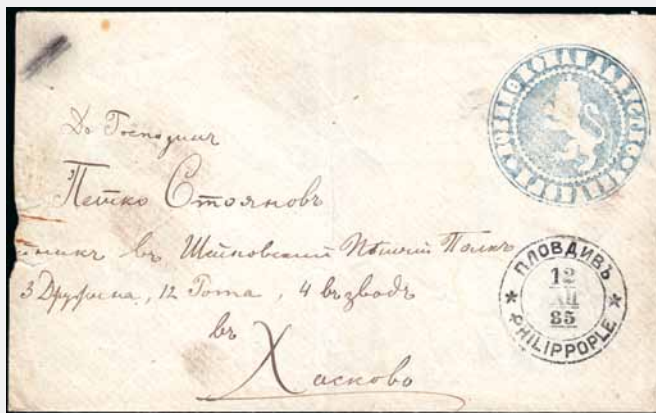 До Господинъ
Петко Стояновъ
въ Шейновский Пѣший Полкъ
3 Дружина, 12 Рота, 4 взводъ
въ
Хасково
ПЛОВДИВЪ
12
XII
85
PHILIPPOPLE